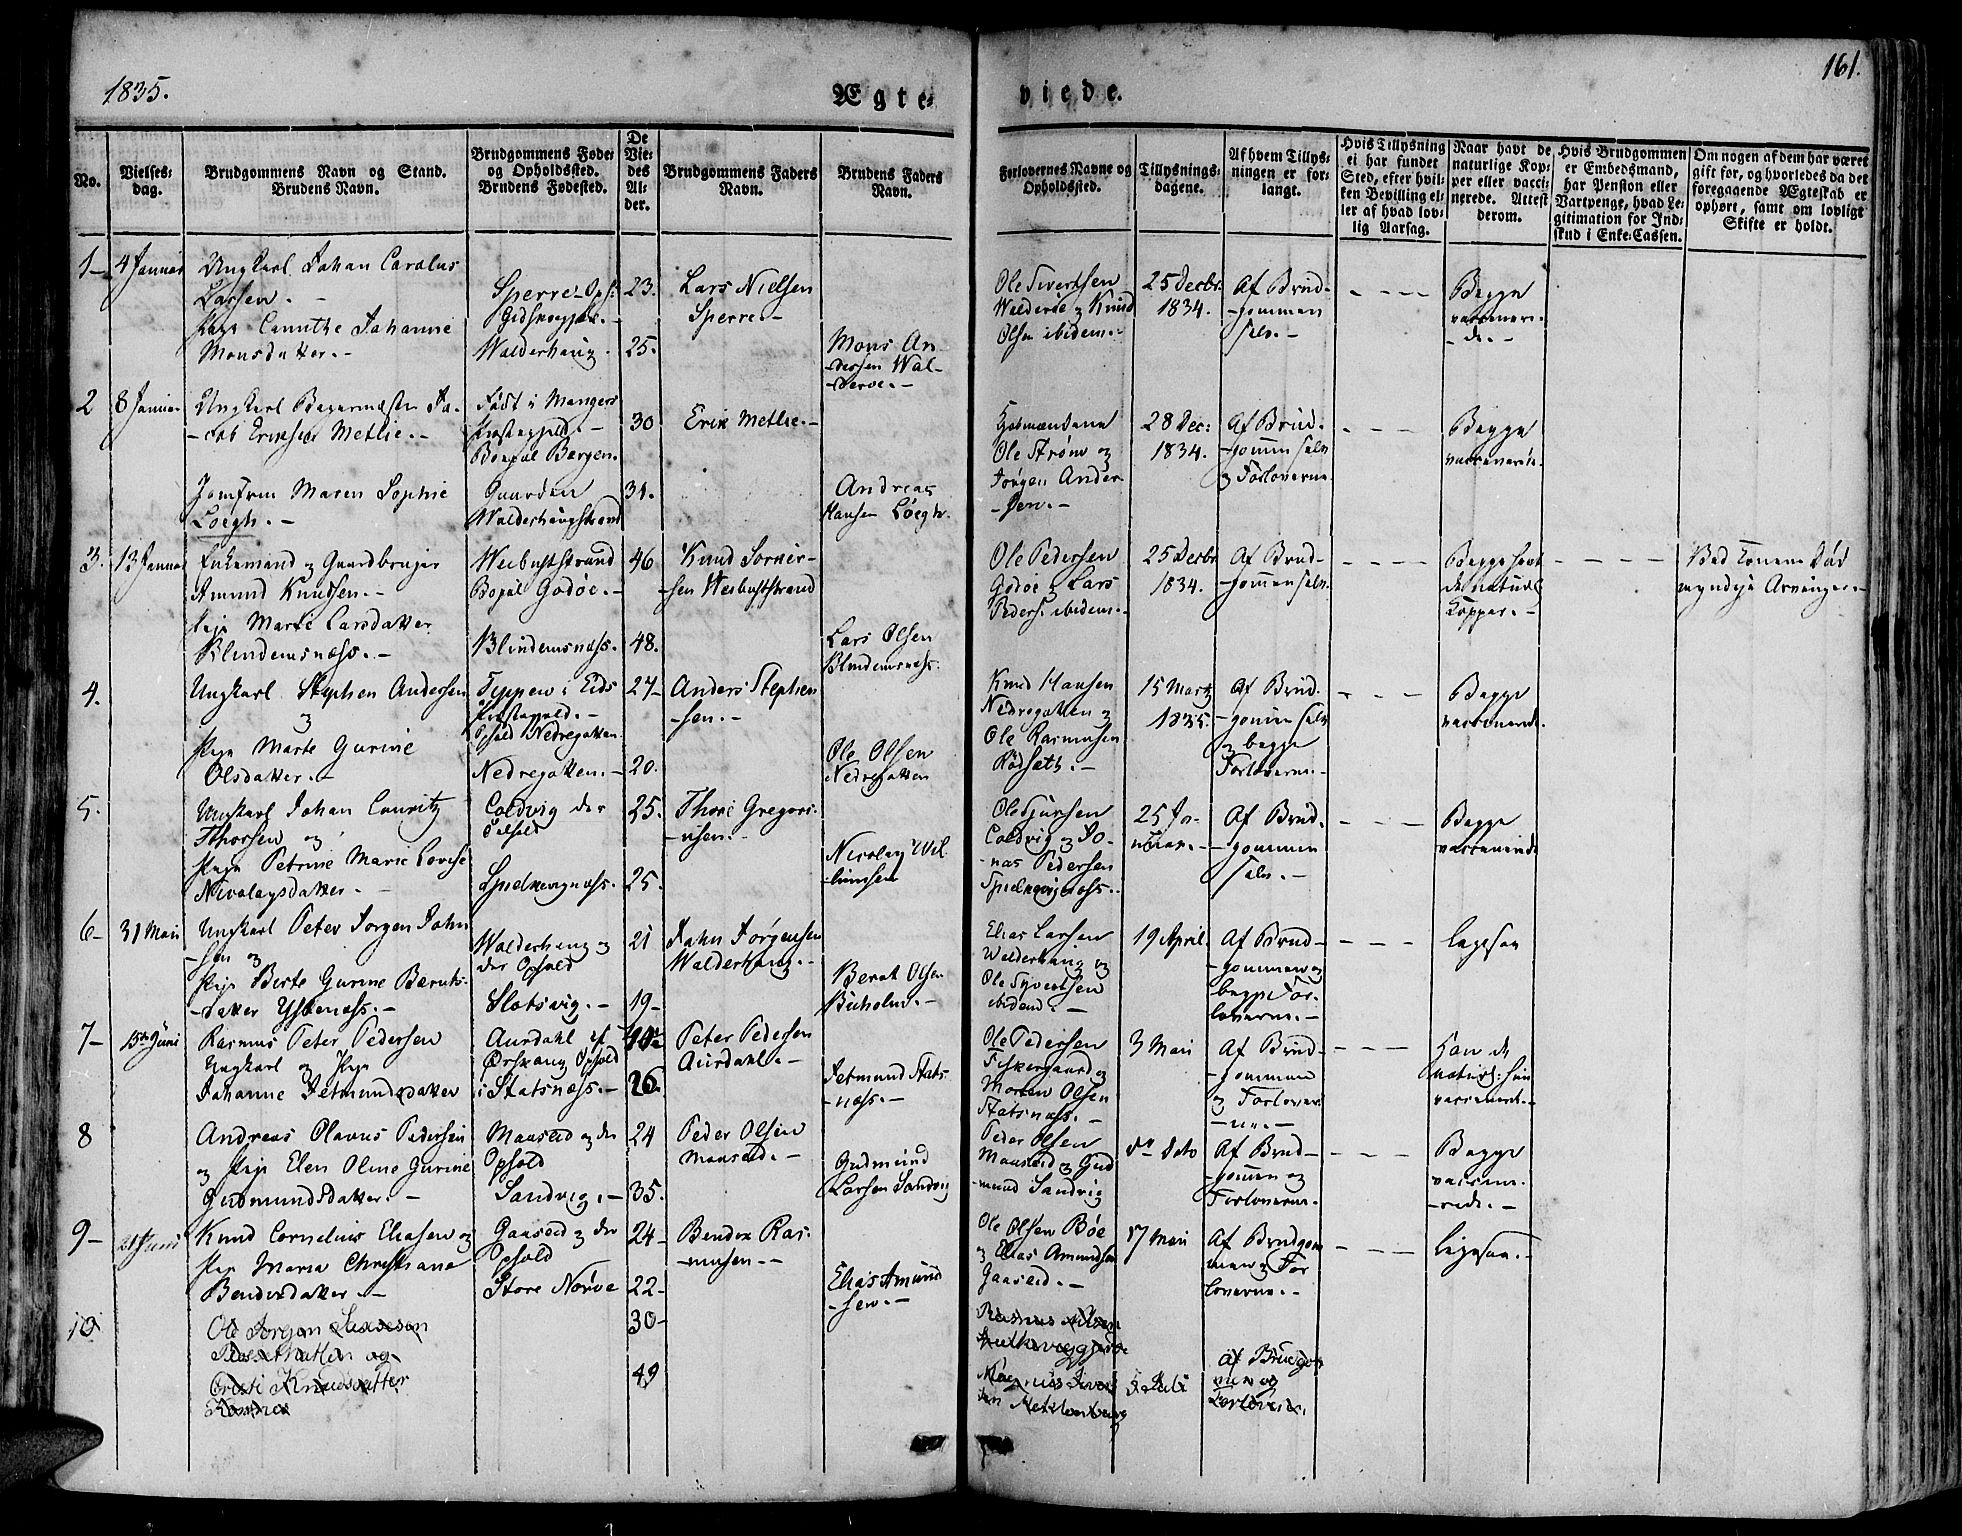 1835.
Ægte-
viede.
161.
No.
Vielses-
dag.
Brudgommens Navn og Stand.
Brudens Navn.
Brudgommens Føde-
og Opholdssted.
Brudens Fødested.
De
Vie-
des
Al-
der.
Brudgommens Faders
Navn.
Brudens Faders
Navn.
Forlovernes Navne og
Opholdssted.
Tillysnings-
dagene.
Af hvem Tillys-
ningen er for-
langt.
Hvis Tillysning
ei har fundet
Sted, efter hvil-
ken Bevilling el-
ler af hvad lov-
lig Aarsag.
Naar havt de
naturlige Kop-
per eller vacci-
nerede. Attest
derom.
Hvis Brudgommen
er Embedsmand,
har Pension eller
Vartpenge, hvad Le-
gitimation for Ind-
skud i Enke-Cassen.
Om nogen af dem har været
gift før, og hvorledes da det
foregaaende Ægteskab er
ophørt, samt om lovligt
Skifte er holdt.
1-
4 Januar
Ungkarl Johan Carolus
Larsen. -
Pige Johanne
Monsdatter. -
Sperre
Walderhaug.
23.
25.
Lars Nielsen
Sperre -
Mons An-
dersen Wal-
deroe. -
Ole Sivertsen
Walderøe og Knud
Olsen ibidem. -
25 Decbr.
1834.
Af Brud-
-gommen
selv. -
- - - -
Begge
vaccinere-
- de. -
2
8 Januar
Ungkarl Bagermester Ja-
-cob Eriksen Metlie. -
Jomfru Maren Sophie
Loegh. -
Født i Mangers
Præstegjeld. -
Bopæl Bergen.
Gaarden
Walderhaugstrand
30
31.
Erik Metlie. -
Andreas
Hansen Løegh.
Ole Strøm og
Jørgen Ander
- sen. -
28 Dec:
1834.
Af Brud-
-gommen selv
og Forloverne
- - - -
Begge
vaccinerede.
3.
13 Januar
Enkemand og Gaardbruger
Amund Knudsen. -
Pige Marte Larsdatter
Blindemsnæss. -
Weibustsstrand
Bopæl Godøe. -
Blindemsnæss.
46
48.
Knud
-sen Weibustsstrand
Lars Olsen
Blindemsnæss.
Ole Pedersen
Godøe og Lars
Peders. ibidem. -
25 Decbr
1834.
Af Brud-
-gommen selv.
- - - -
Begge havt
de naturl.
Kopper. -
- - - -
Ved Konens Død
myndige Arvinger. -
4.
Ungkarl Stephen Andersen
og
Pige Marte Gurine
Olsdatter. -
i Eids
Præstegjeld. -
Ophold Nedregotten
Nedregotten. -
27-
20.
Anders Stephen
-sen. -
Ole Olsen
Nedregotten
Knud Hansen
Nedregotten og
Ole Rasmusen
Rødseth. -
15 Marty
1835.
Af Brud-
-gommen selv
og begge
Forloverne. -
- - - -
Begge
vaccinerede.
5.
Ungkarl Johan Lauritz
Thorsen og
Pige Petrine Marie Lovise
Nicolaysdatter. -
Coldvig der
Ophold
Spielkevignæss.
25.
25.
Thore Gregori-
-usen. -
Nicolay Wil-
-lumsen
Ole Sjursen
Coldvig og Jo-
-nas Pedersen
Spielkevignæss. -
25 Ja-
nuar. -
Af Brud-
-gommen
selv. -
- - - -
Begge
vaccinerede
6-
31 Mai
Ungkarl Peter Jørgen John
-sen og
Pige Berte Gurine Berents-
-datter Ystenæss. -
Walderhaug og
der Ophold
Slotsvig. -
21
19-
John Jørgensen
Walderhaug. -
Berent Olsen
Elias Larsen
Walderhaug og
Ole Syvertsen
ibidem. -
19 April.
Af Brud-
-gommen og
begge For-
loverne. -
- - - -
ligesaa
7-
Juni
Rasmus Peter Pedersen
Ungkarl og Pige
Johanne Jetmundsdatter
Aurdahl if
Ørskoug Ophold
i Statsnæss. -
26.
Peter Pedersen
Aurdahl. -
Jetmund Stats-
-næss. -
Ole Pedersen
Fiskergaard og
Morten Olsen
Statsnæss. -
3 Mai
Af Brud-
-gommen
og Forlover
- ne. -
- - - -
Han de
naturl: hun
vaccineret. -
8
Andreas Olavus Pedersen
og Pige Elen Oline Gurine
Gudmundsdatter. -
Maaseid og der
Ophold
Sandvig. -
24
35.
Peder Olsen
Maaseid. -
Gudmund
Larsen Sandvig
Peder Olsen
Maaseid og Gud
-mund Sandvig
do Dato
Af Brud-
-gommen og
Forloverne.
- - - -
Begge
vaccine-
-rede. -
9-
21 Juni
Knud Cornelius Eliasen og
Pige Maria Christiane
Bendixdatter. -
Gaaseid og der
Ophold
Store Nørve
24-
22-
Bendix Ras-
-musen. -
Elias Amund
-sen. -
Ole Olsen Bøe
og Elias Amundsen
Gaaseid. -
17 Mai
Af Brudgom
men og For
loverne. -
- - - -
ligesaa. -
10
Ole Jørgen
og
Knudsdatter
30-
49
Juli
Af Brudgom
men og
Forlovere.